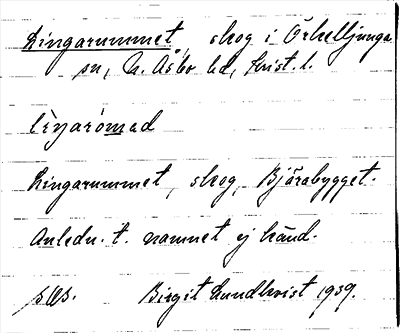 Lingarummet, skog i Örkelljunga
sn, N. Åsbo hd, Krist. l.
Lingarummet, skog, Bjärabygget.
Anledn. t. namnet ej känd.
Birgit Lundkvist 1939.